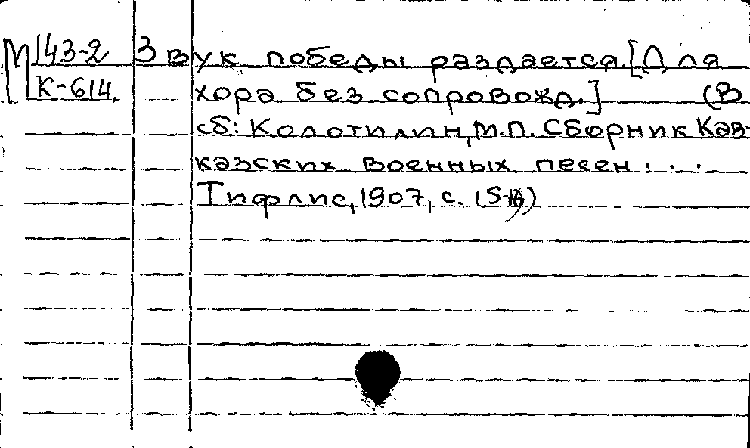 М 143-2 Звук победы раздается. [Для
К-614. хора без сопровожд.] (В
сб: Колотилин, М.П. Сборник Кав-
казских военных песен...
Тифлис, 1907, с. 15